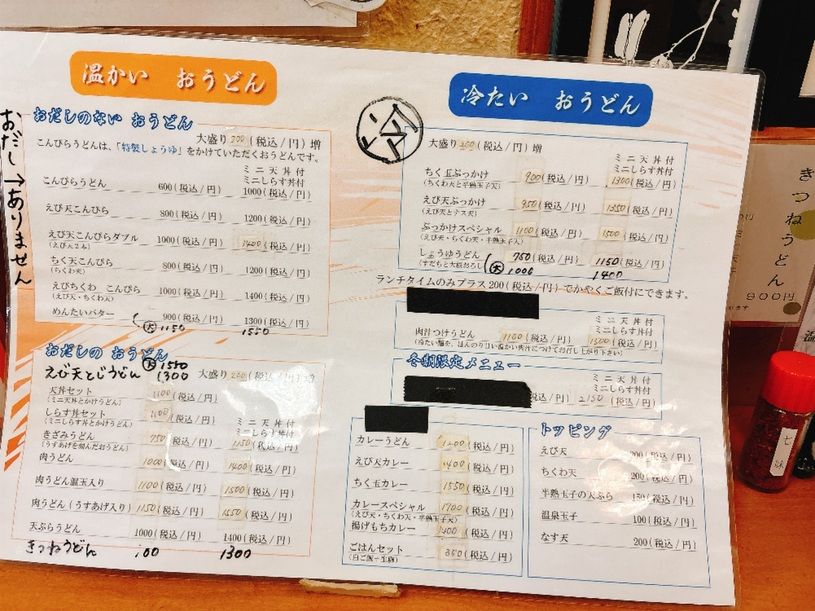 温かい おうどん
おだし→ありません
おだしのない おうどん
大盛り 200(税込/円)増
こんぴらうどんは、「特製しょうゆ」をかけていただくおうどんです。
ミニ天丼付
ミニしらす丼付
こんぴらうどん 600(税込/円) 1000(税込/円)
えび天こんぴら 800(税込/円) 1200(税込/円)
えび天こんぴらダブル 1000(税込/円) 1400(税込/円)
(えび天2本)
ちく天こんぴら 800(税込/円) 1200(税込/円)
(ちくわ天)
えびちくわ こんぴら 1000(税込/円) 1400(税込/円)
(えび天・ちくわ天)
めんたいバター 900(税込/円) 1300(税込/円)
大 1150 1550
おだしの おうどん
大 1550
えび天とじうどん 1300 大盛り 200(税込/円)増
天丼セット 1100(税込/円)
(ミニ天丼とかけうどん)
ミニ天丼付
しらす丼セット 1100(税込/円) ミニしらす丼付
(ミニしらす丼とかけうどん)
きざみうどん 750(税込/円) 1150(税込/円)
(うすあげを刻んだおうどん)
肉うどん 1000(税込/円) 1400(税込/円)
肉うどん温玉入り 1100(税込/円) 1500(税込/円)
肉うどん(うすあげ入り) 1150(税込/円) 1550(税込/円)
天ぷらうどん 1000(税込/円) 1400(税込/円)
きつねうどん 1300
冷たい おうどん
冷
大盛り 200(税込/円)増
ミニ天丼付
ミニしらす丼付
ちく玉ぶっかけ 900(税込/円) 1300(税込/円)
(ちくわ天と半熟玉子天)
えび天ぶっかけ 950(税込/円) 1350(税込/円)
(えび天とナス天)
ぶっかけスペシャル 1100(税込/円) 1500(税込/円)
(えび天・ちくわ天・半熟玉子天)
しょうゆうどん 750(税込/円) 1150(税込/円)
(すだちと大根おろし) 大 1000 1400
ランチタイムのみプラス200(税込/円)でかやくご飯付にできます。
ミニ天丼付
ミニしらす丼付
肉汁つけうどん 1100(税込/円) 1500(税込/円)
冬期限定メニュー
ミニ天丼付
ミニしらす丼付
税込/円) 2150(税込/円)
カレーうどん 1200(税込/円)
えび天カレー 1400(税込/円)
ちく玉カレー 1550(税込/円)
カレースペシャル 1700(税込/円)
(えび天・ちくわ天・半熟玉子天)
揚げもちカレー 1400(税込/円)
ごはんセット 350(税込/円)
(白ご飯+生卵)
トッピング
えび天 200(税込/円)
ちくわ天 200(税込/円)
半熟玉子の天ぷら 150(税込/円)
温泉玉子 100(税込/円)
なす天 200(税込/円)
きつねうどん
900円
七味